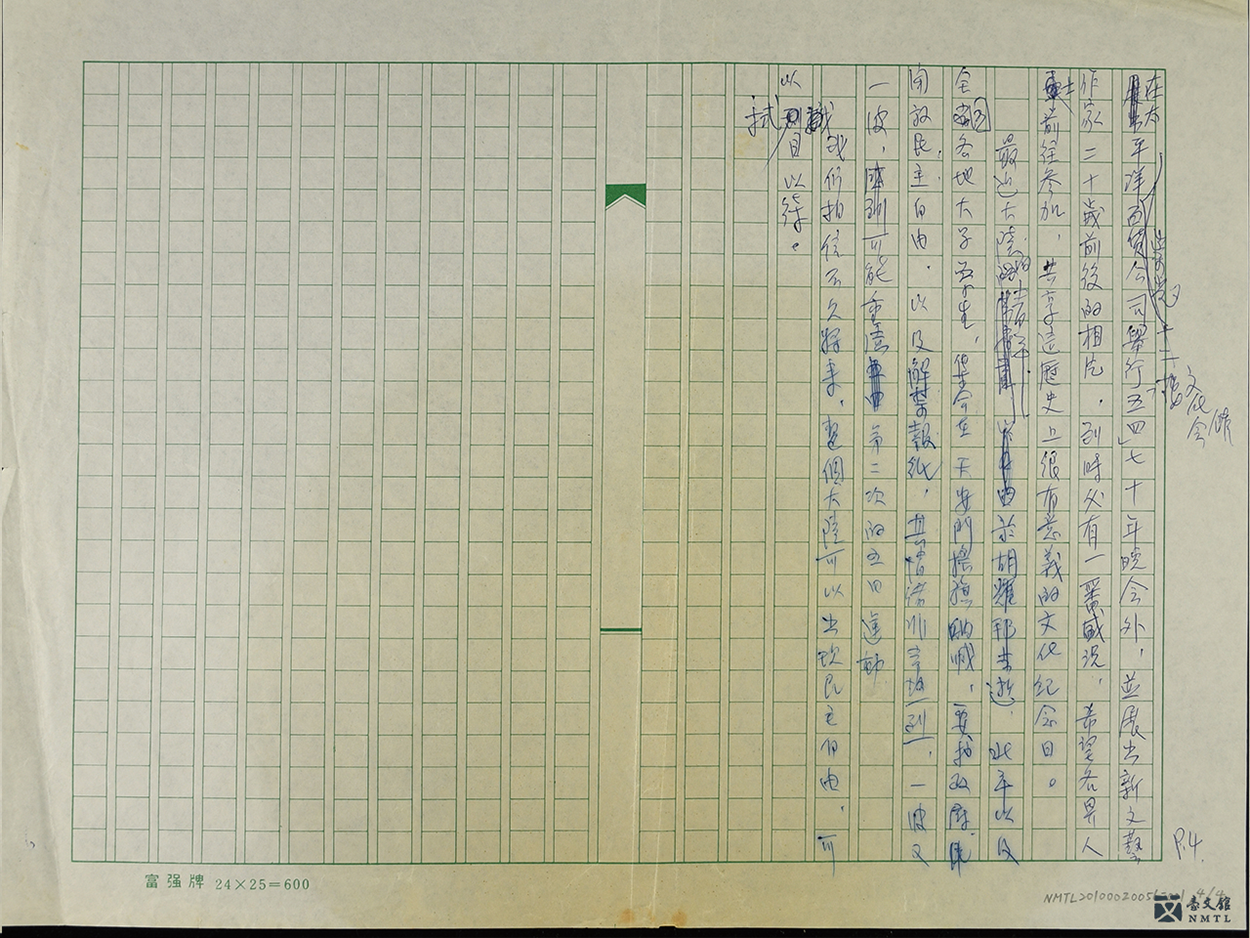 在太平洋百貨公司舉行五四」七十年晚會外，並展出新文藝
崇光
十二樓文化會館
作家二十歲前後的相片，到時必有一番盛況，希望各界人
士前往參加，共享這歷史上很有意義的文化紀念日。
最近大陸的 於胡耀邦去逝，北平以及
全國各地大子生，集會在天安門搖旗吶喊，要求政府
開放民主自由，以及解禁報紙，一波又
一波，可能重演第二次的五四運動
我們相信不久將來，整個大陸可以出現民主自由，可
以拭目以待。
P.4.
富强牌 24×25=600
4/4
臺文館
NMTL